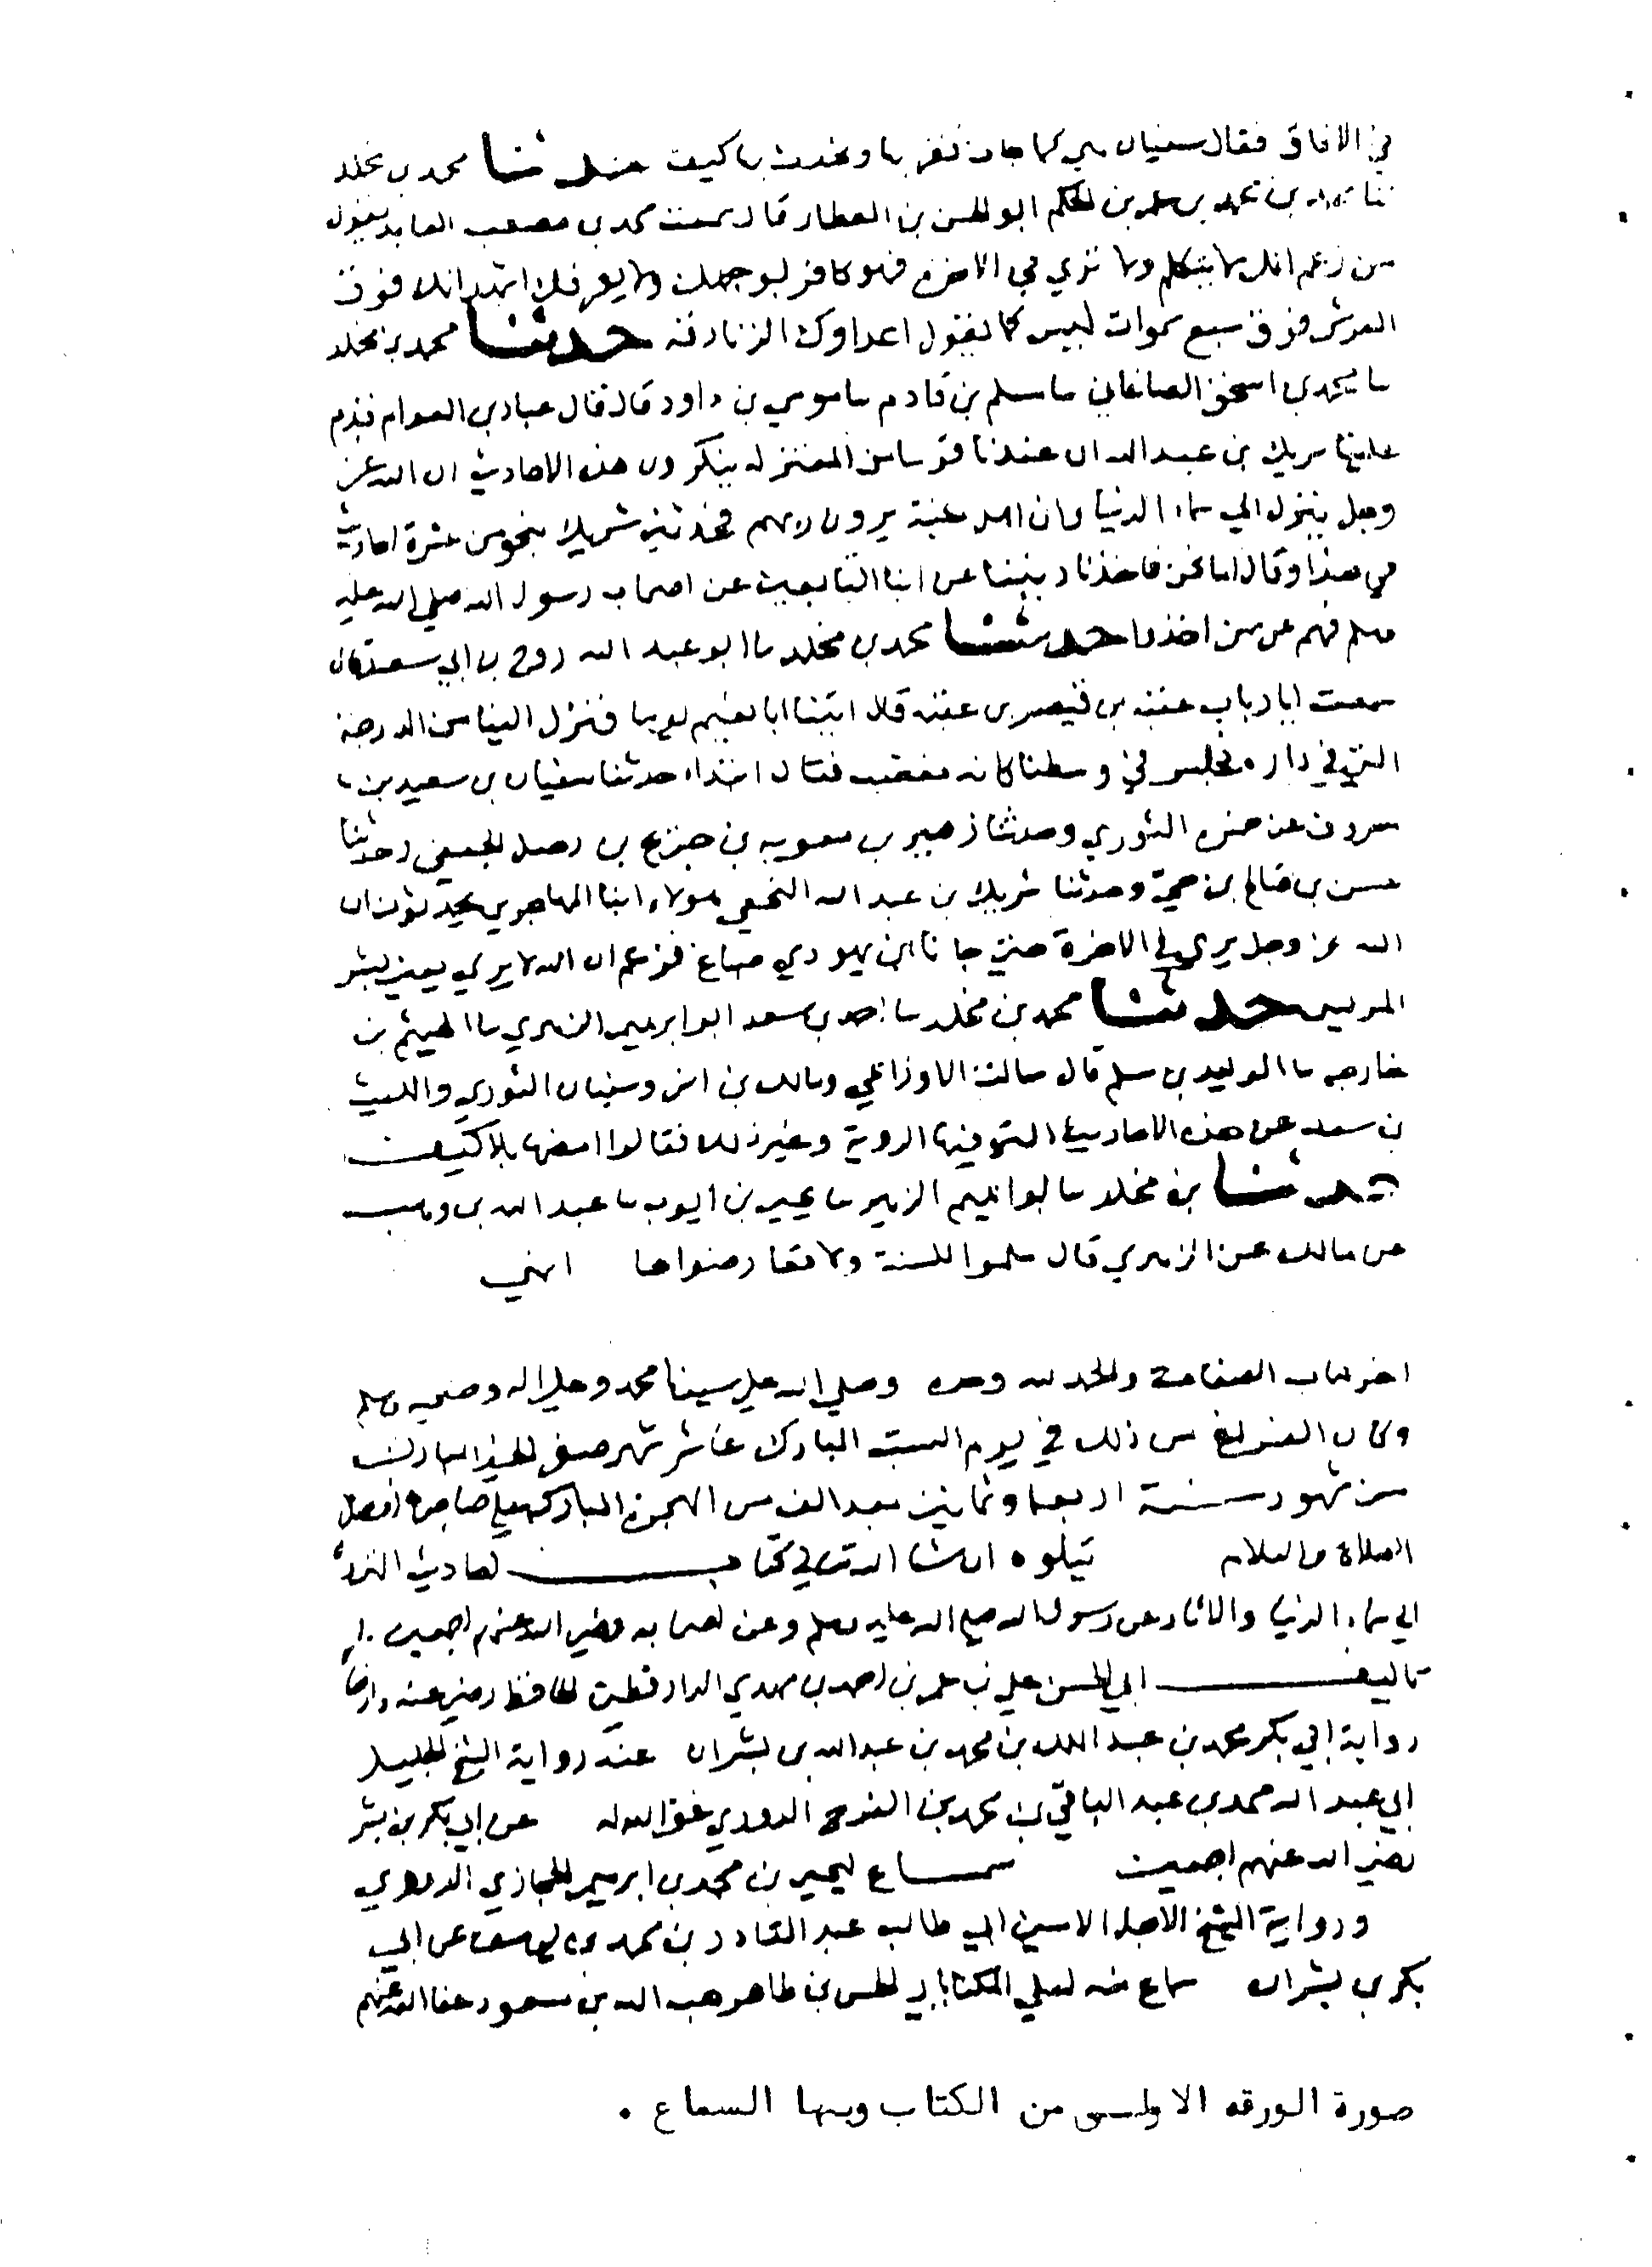 في الافاق فقال سفيان هي كما جات نقر بها ونحدث بلا كيف حدثنا محمد بن مخلد
ثنا محمد بن محمد بن عمر بن الحكم ابو الحسن بن العطار قال سمعت محمد بن مصعب العابد يقول
من زعم انك لا تتكلم ولا ترى في الاخرة فهو كافر بوجهك ولا يعرفك اشهد انك فوق
العرش فوق سبع سموات ليس كما يقول اعداوك الزنادقه حدثنا محمد بن مخلد
سا محمد بن اسحق الصاغاني سا سلم بن قادم سا موسي بن داود قال قال عباد بن العوام قدم
علينا شريك بن عبد الله ان عندنا قوما من المعتزله ينكرون هذه الاحاديث ان الله عز
وجل ينزل الي سماء الدنيا وان اهل الجنة يرون ربهم فحدثني شريك بنحو من عشرة احاديث
في هذا وقال اما نحن فاخذنا ديننا عن ابنا التابعين عن اصحاب رسول الله صلي الله عليه
وسلم فهم عن من اخذوا حدثنا محمد بن مخلد سا ابو عبد الله روح بن ابي سعد قال
سمعت ابا رباب عقبه بن قبيصه بن عقبه قال اتينا ابا نعيم يوما فنزل الينا من الدرجة
التي في داره فجلس في وسطنا كانه مغضب فقال ابتداء حدثنا سفيان بن سعيد بن
مسروق عن حمزه الثوري وحدثنا زهير بن معويه بن حديج بن رحيل الجعفي وحدثنا
حسن بن صالح بن حي وحدثنا شريك بن عبد الله النخعي هولاء ابنا المهاجرين يحدثون ان
الله عز وجل يرى في الاخرة حتي جانا ابن يهودي صباغ فزعم ان الله لا يرى يعني بشر
المريسي حدثنا محمد بن مخلد سا احمد بن سعد ابو ابرهيم الزهري سا الهيثم بن
خارجه سا الوليد بن مسلم قال سالت الاوزاعي ومالك بن انس وسفيان الثوري والليث
بن سعد عن هذه الاحاديث التي فيها الروية وغير ذلك فقالوا امضها بلا كيف
حدثنا بن مخلد سا ابو ابرهيم الزهير سا يحيى بن ايوب سا عبد الله بن وهب
عن مالك عن الزهري قال سلموا للسنة ولا تعارضوها انتهي
اخر كتاب الصفات والحمد لله وحده وصلي الله علي سيدنا محمد وعلي اله وصحبه وسلم
وكان الفراغ من ذلك في يوم السبت المبارك عاشر شهر صفر الخير المبارك
من شهور سنة اربعه وثمانين بعد الف من الهجرة المباركه علي صاحبها افضل
الصلاة والسلام يتلوه ان شا الله تعالي كتاب احاديث النزول
الي سماء الدنيا والاثار عن رسول الله صلي الله عليه وسلم وعن اصحابه رضي الله عنهم اجمعين
تاليف ابي الحسن علي بن عمر بن احمد بن مهدي الدارقطني الحافظ رضي عنه وارضا
رواية ابي بكر محمد بن عبد الملك بن محمد بن عبد الله بن بشران عنه رواية الشيخ الجليل
ابي عبد الله محمد بن عبد الباقي بن محمد بن الفرج الدوري غفر الله له عن ابي بكر بن بشر
رضي الله عنهم اجمعين سماع ليحيى بن محمد بن ابرهيم الحجازي الدوري
ورواية الشيخ الاجل الامين ابي طالب عبد القادر بن محمد بن يوسف عن ابي
بكر بن بشران سماع منه لعلي بن الحسن بن طاهر هبه الله بن مسعود عفا الله عنهم
صورة الورقه الاولى من الكتاب وبها السماع .